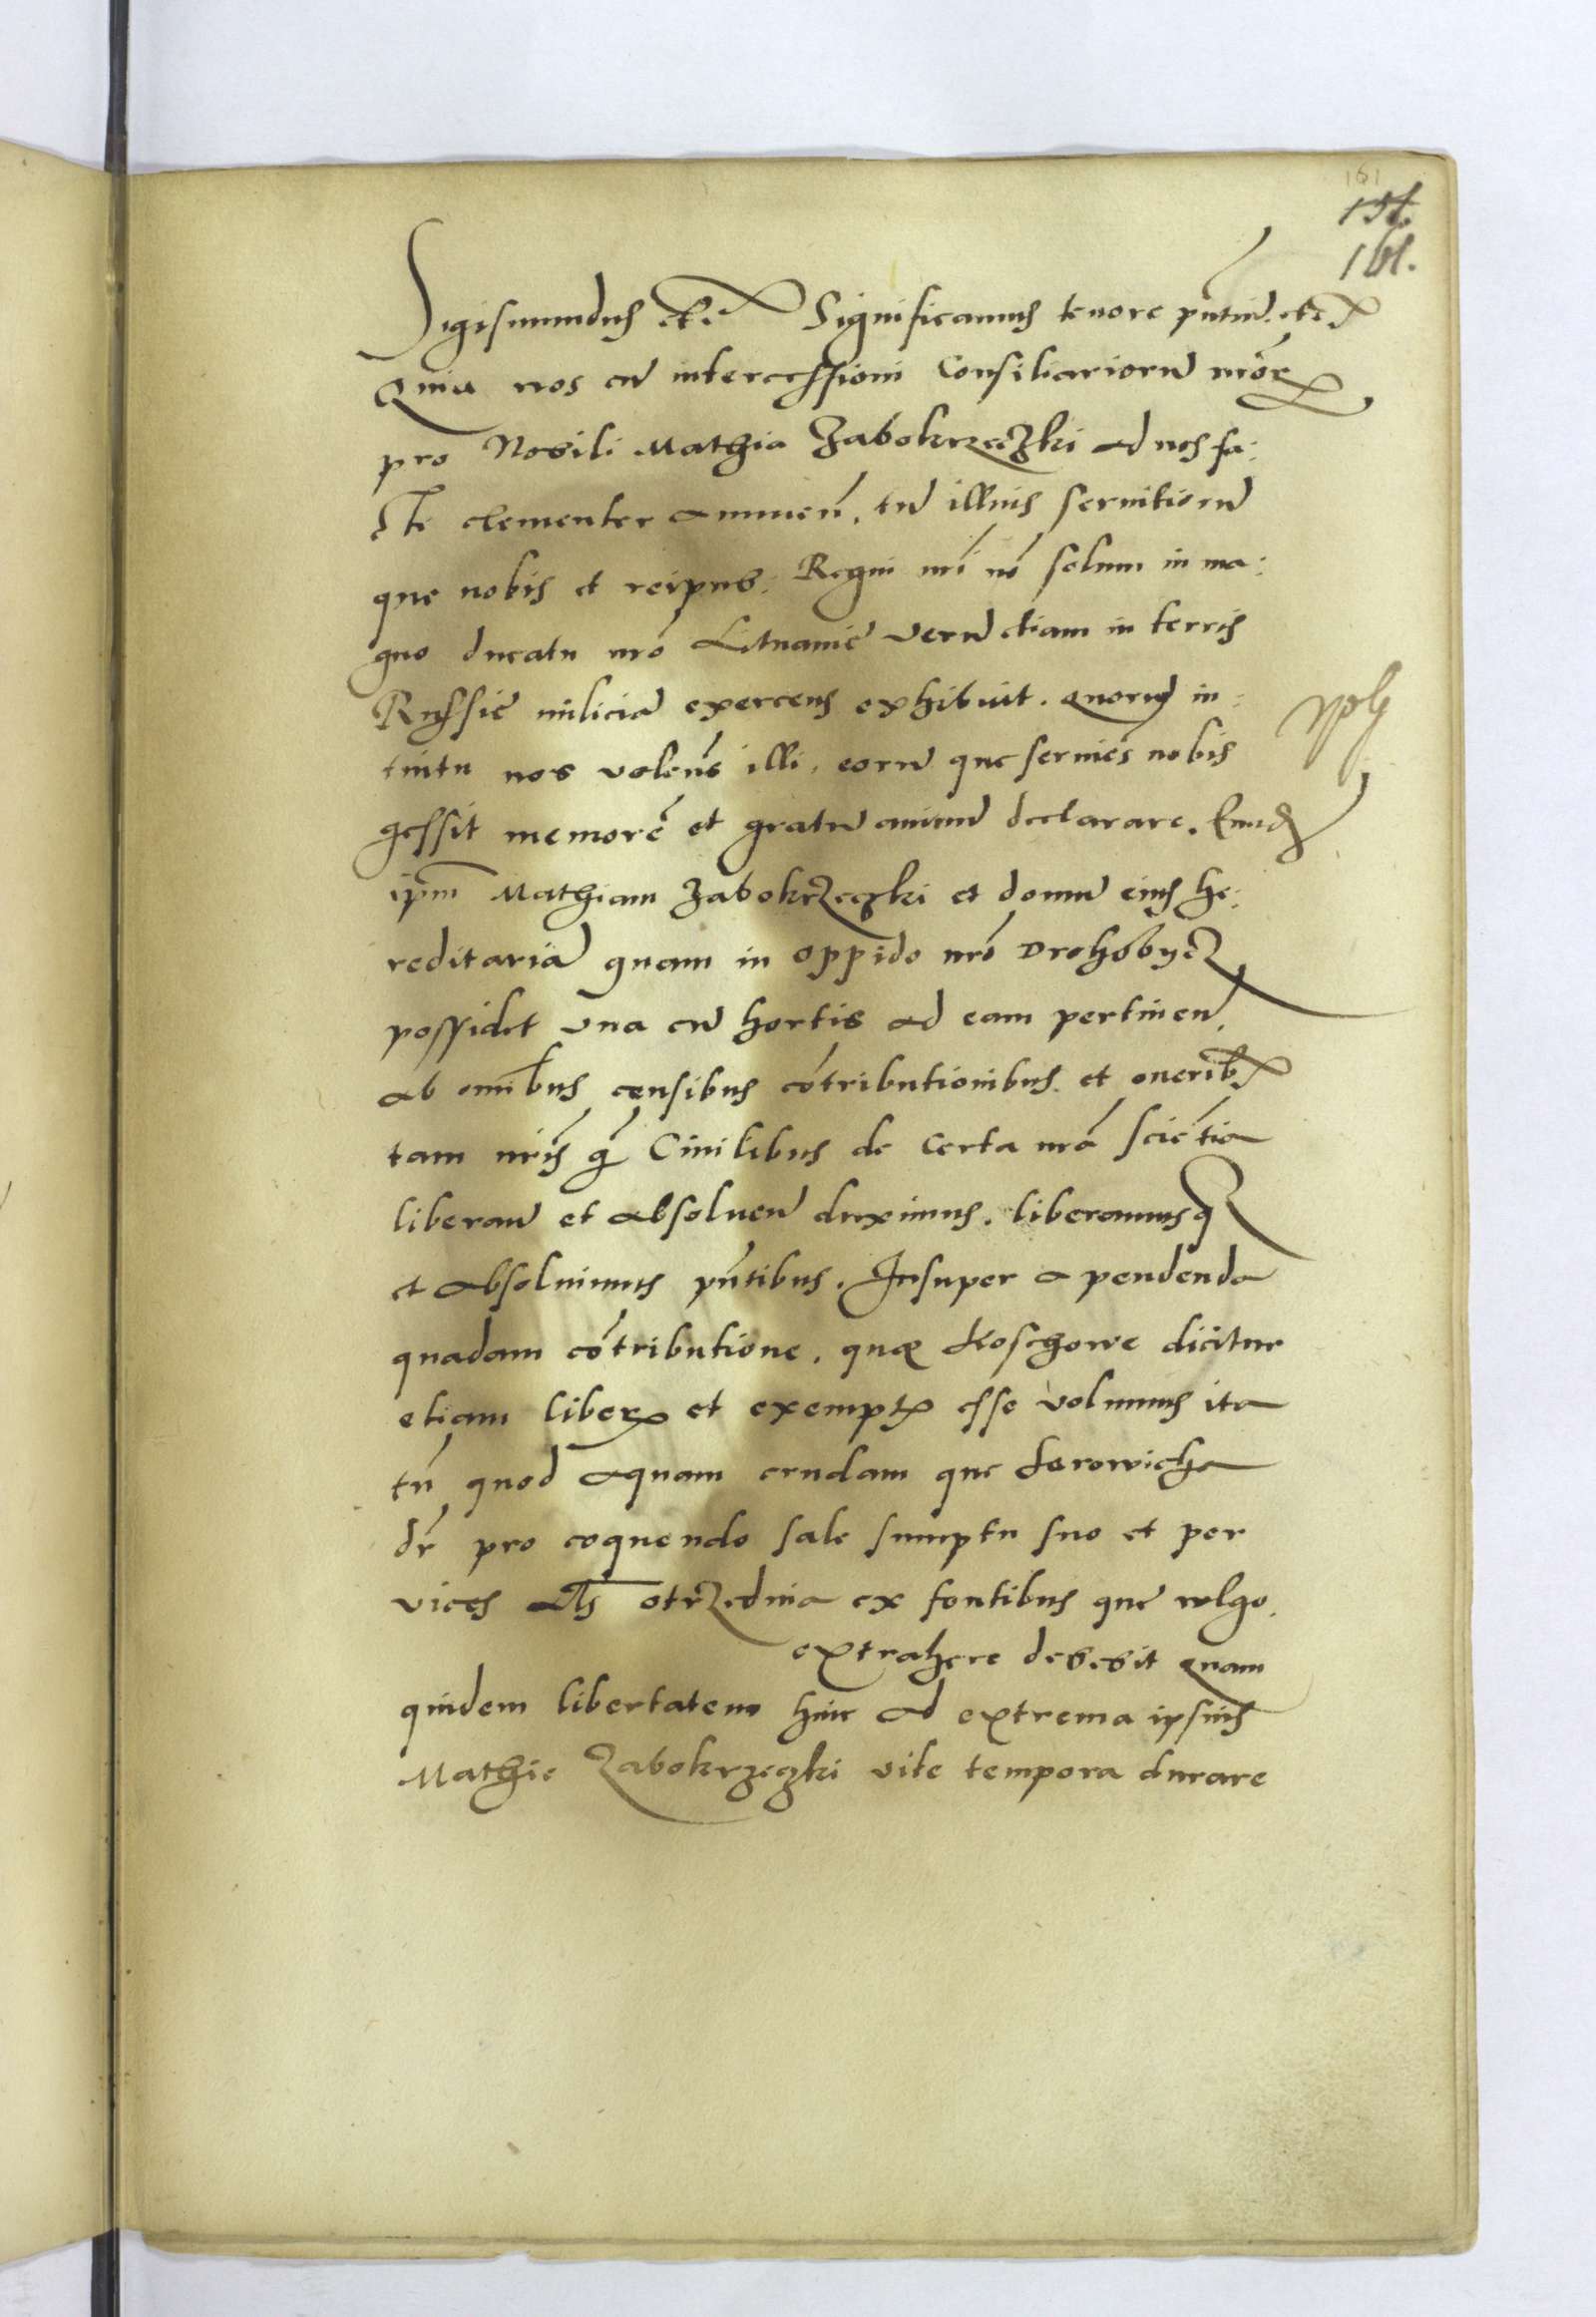 161
161.
Sigismundus etc̃ Significamus tenore p̃ntiũ. etc̃
Quia nos cũ intercessioni Consiliariorũ nrõr
pro Nobili Mathia Zabokrzeczki ad nos fa:
cte clementer annueñ. tũ illius seruitiorũ
que nobis et reipub: Regni nrĩ nõ solum in ma:
gno ducatu nrõ Lituaniẽ verũ etiam in terris
Russiẽ miliciã exercens exhibuit. quorũ in:
tuitu nos volens illi, eorũ que seruiẽs nobis
gessit memorẽ et gratũ animũ declarare. Eundẽ
ip̃m Mathiam Zabokrzeczki et domũ eius he:
reditariã quam in oppido nrõ Drohobycz
possidet vna cũ hortis ad eam pertineñ.
ab omnibus censibus cõtributionibus et onerib
tam nrĩs q̃ Ciuilibus de Certa nrã sciẽtia
liberanũ et absoluenũ duximus. liberamusq
et absoluimus p̃ntibus. Insuper a pendenda
quadam cõtributione, quæ Koschowe dicitur
etiam liberos et exemptos esse volumus ita
tñ quod aquam crudam que Serowicha
dr̃ pro coquendo sale sumptu suo et per
vices als̃ otrzednia ex fontibus que wlgo
extrahere debebit quam
quidem libertatem huic ad extrema ipsius
Mathie Zabokrzeczki vite tempora durare